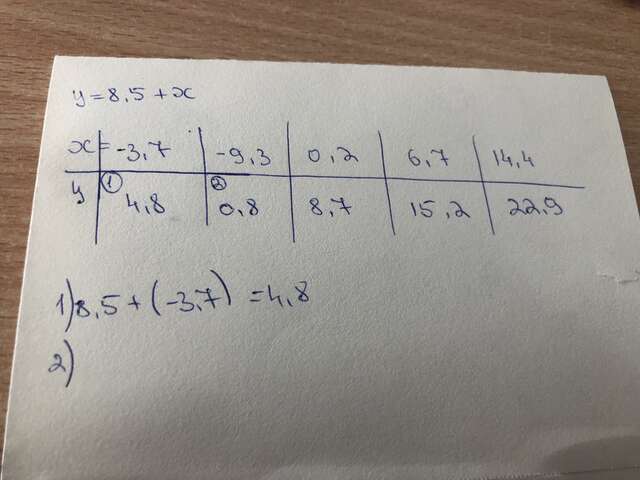 y = 8,5 + x
x = -3,7 -9,3 0,2 6,7 14,4
y ① 4,8 ② 0,8 8,7 15,2 22,9
1) 8,5 + (-3,7) = 4,8
2)